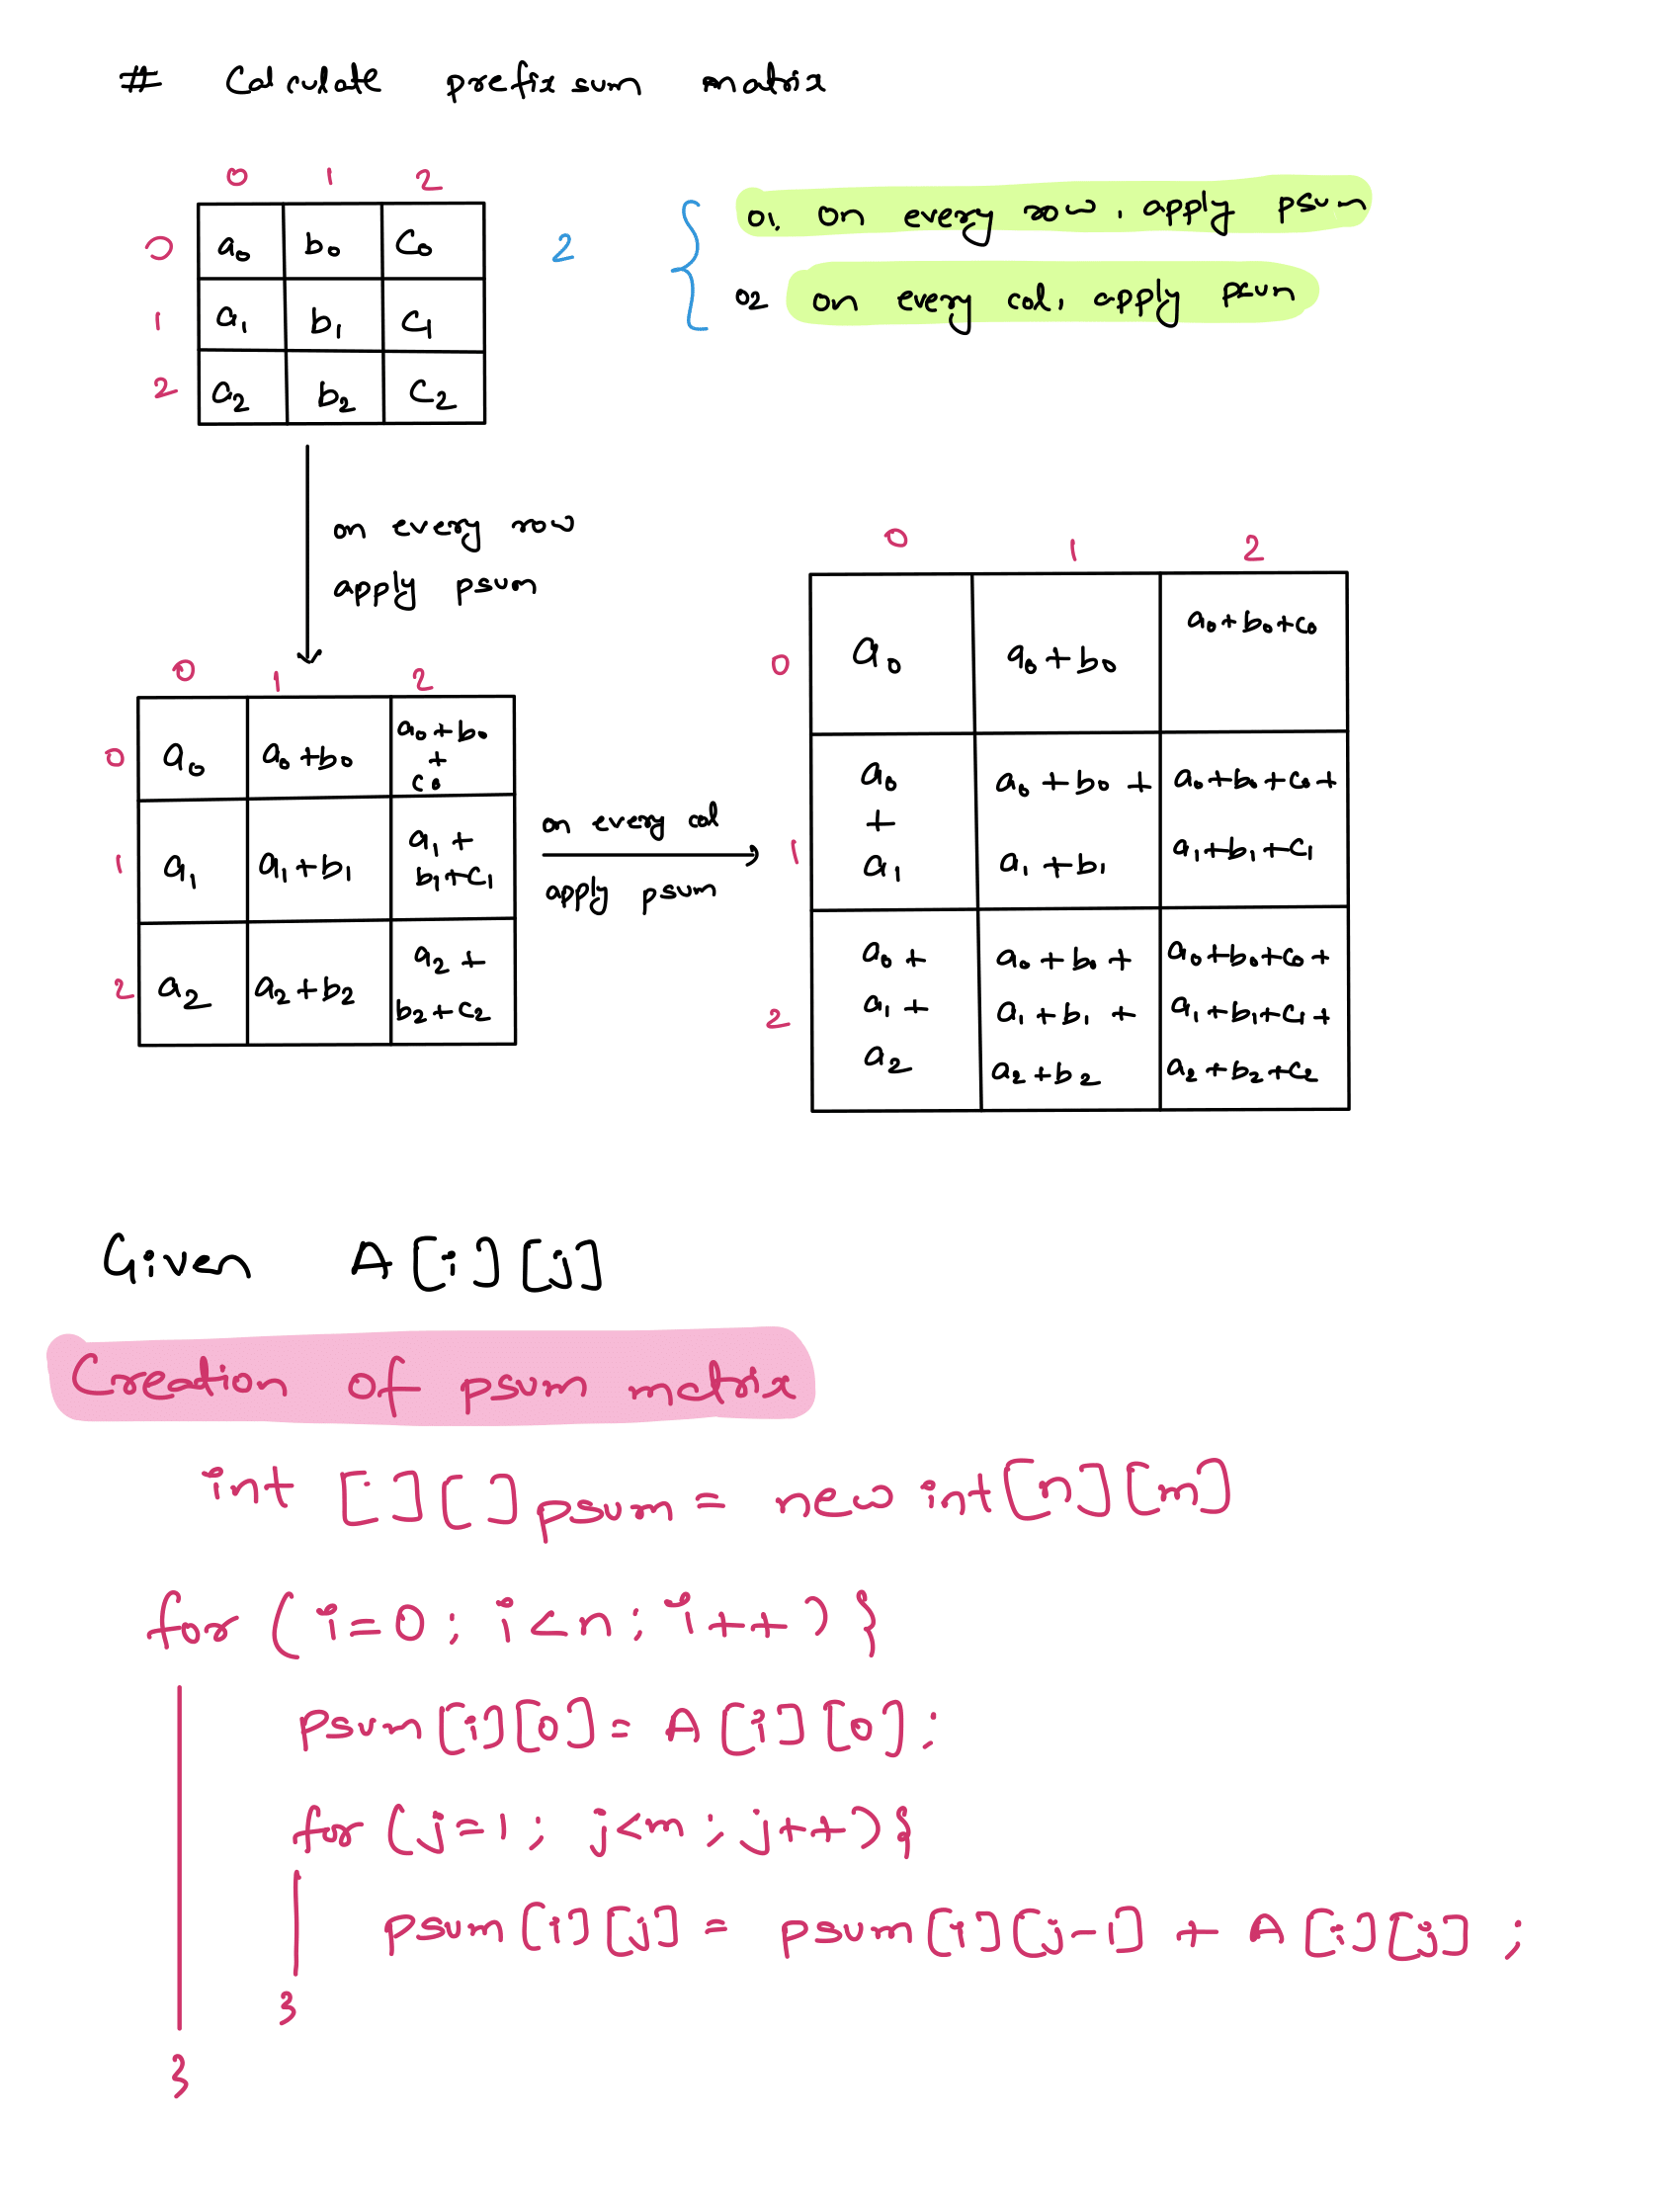 # Calculate prefix sum matrix
0 1 2
0 a0 b0 c0
1 a1 b1 c1
2 a2 b2 c2
2
01. on every row, apply psum
02 on every col, apply psum
on every row
apply psum
0 1 2
0 a0 a0+b0 a0+b0
+
c0
1 a1 a1+b1 a1+
b1+c1
2 a2 a2+b2 a2+
b2+c2
on every col
apply psum
0 1 2
0 a0 a0+b0 a0+b0+c0
1 a0 a0+b0+ a0+b0+c0+
+
a1 a1+b1 a1+b1+c1
2 a0+ a0+b0+ a0+b0+c0+
a1+ a1+b1+ a1+b1+c1+
a2 a2+b2 a2+b2+c2
Given A[i][j]
Creation of psum matrix
int [][] psum = new int[n][m]
for (i=0; i<n; i++){
psum[i][0] = A[i][0];
for (j=1; j<m; j++){
psum[i][j] = psum[i][j-1] + A[i][j];
}
}